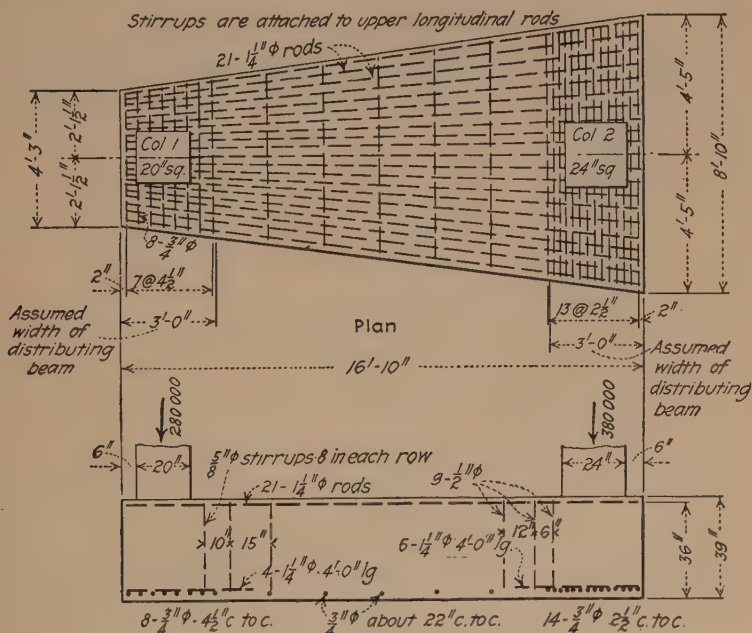 Stirrups are attached to upper longitudinal rods
21-1¼"φ rods
4'-3"
2'-1½"
2'-1½"
Col 1
20"sq.
Col 2
24"sq
4'-5"
4'-5"
8'-10"
8-¾"φ
2"
7@4½"
13@2½"
2"
3'-0"
3'-0"
Assumed
width of
distributing
beam
Plan
Assumed
width of
distributing
beam
16'-10"
280000
380000
6"
20"
⅝"φ stirrups·8 in each row
24"
6"
21-1¼"φ rods
9-½"φ
10"
15"
12"
6"
36"
39"
4-1¼"φ·4'-0"lg
6-1¼"φ·4'-0"lg
8-¾"φ-4½"c to c.
¾"φ about 22"c.to c.
14-¾"φ 2½"c.to c.